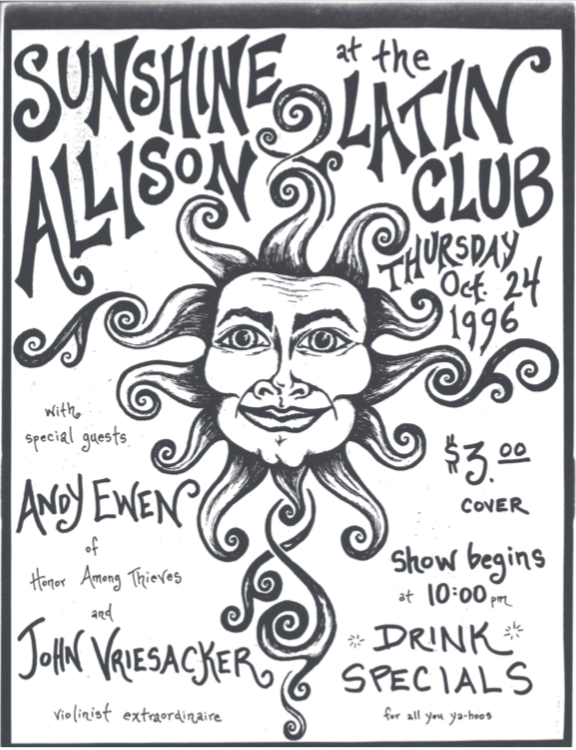 SUNSHINE
ALLISON
at the
LATIN
CLUB
THURSDAY
Oct. 24
1996
with
special guests
ANDY EWEN
of
Honor Among Thieves
and
JOHN VRIESACKER
violinist extraordinaire
$3.00
COVER
show begins
at 10:00 pm
DRINK
SPECIALS
for all you ya-hoos